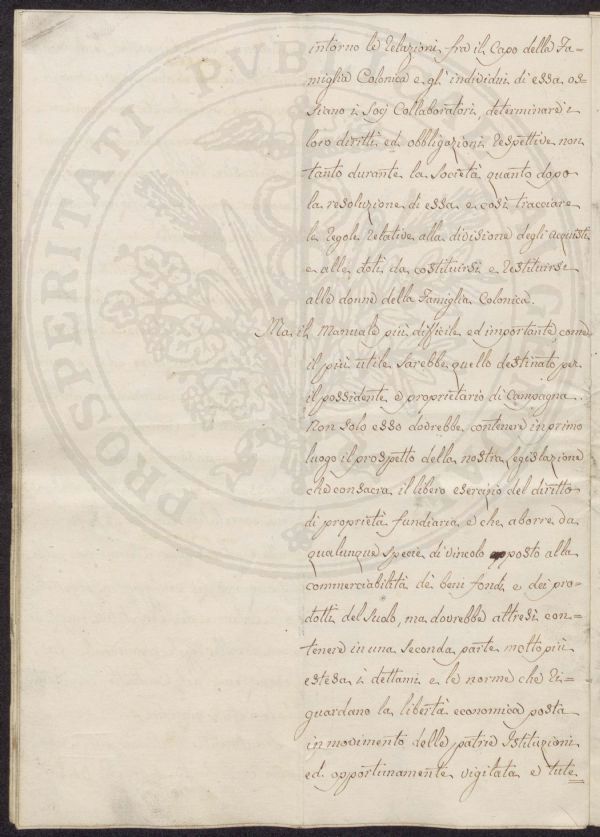 intorno le relazioni fra il Capo della Fa=
miglia Colonica e gl'individui di essa os=
siano i Socj Collaboratori, determinare i
loro diritti ed obbligazioni respettive non
tanto durante la Società quanto dopo
la resoluzione di essa e così tracciare
le regole relative alla divisione degli acquisti
e alle doti da costituirsi e restituirsi
alle donne della Famiglia Colonica.
Ma il Manuale più difficile ed importante come
il più utile sarebbe quello destinato per
il possidente e proprietario di Campagna.
Non solo esso dovrebbe contenere in primo
luogo il prospetto della nostra legislazione
che consacra il libero esercizio del diritto
di proprietà fundiaria e che aborre da
qualunque specie di vincolo opposto alla
commerciabilità de' beni fondi e dei pro=
dotti del suolo, ma dovrebbe altresì con=
tenere in una seconda parte molto più
estesa i dettami e le norme che ri=
guardano la libertà economica posta
in movimento dalle patrie Istituzioni
ed opportunamente vigilata e tute=
PROSPERITATI PUBLICAE